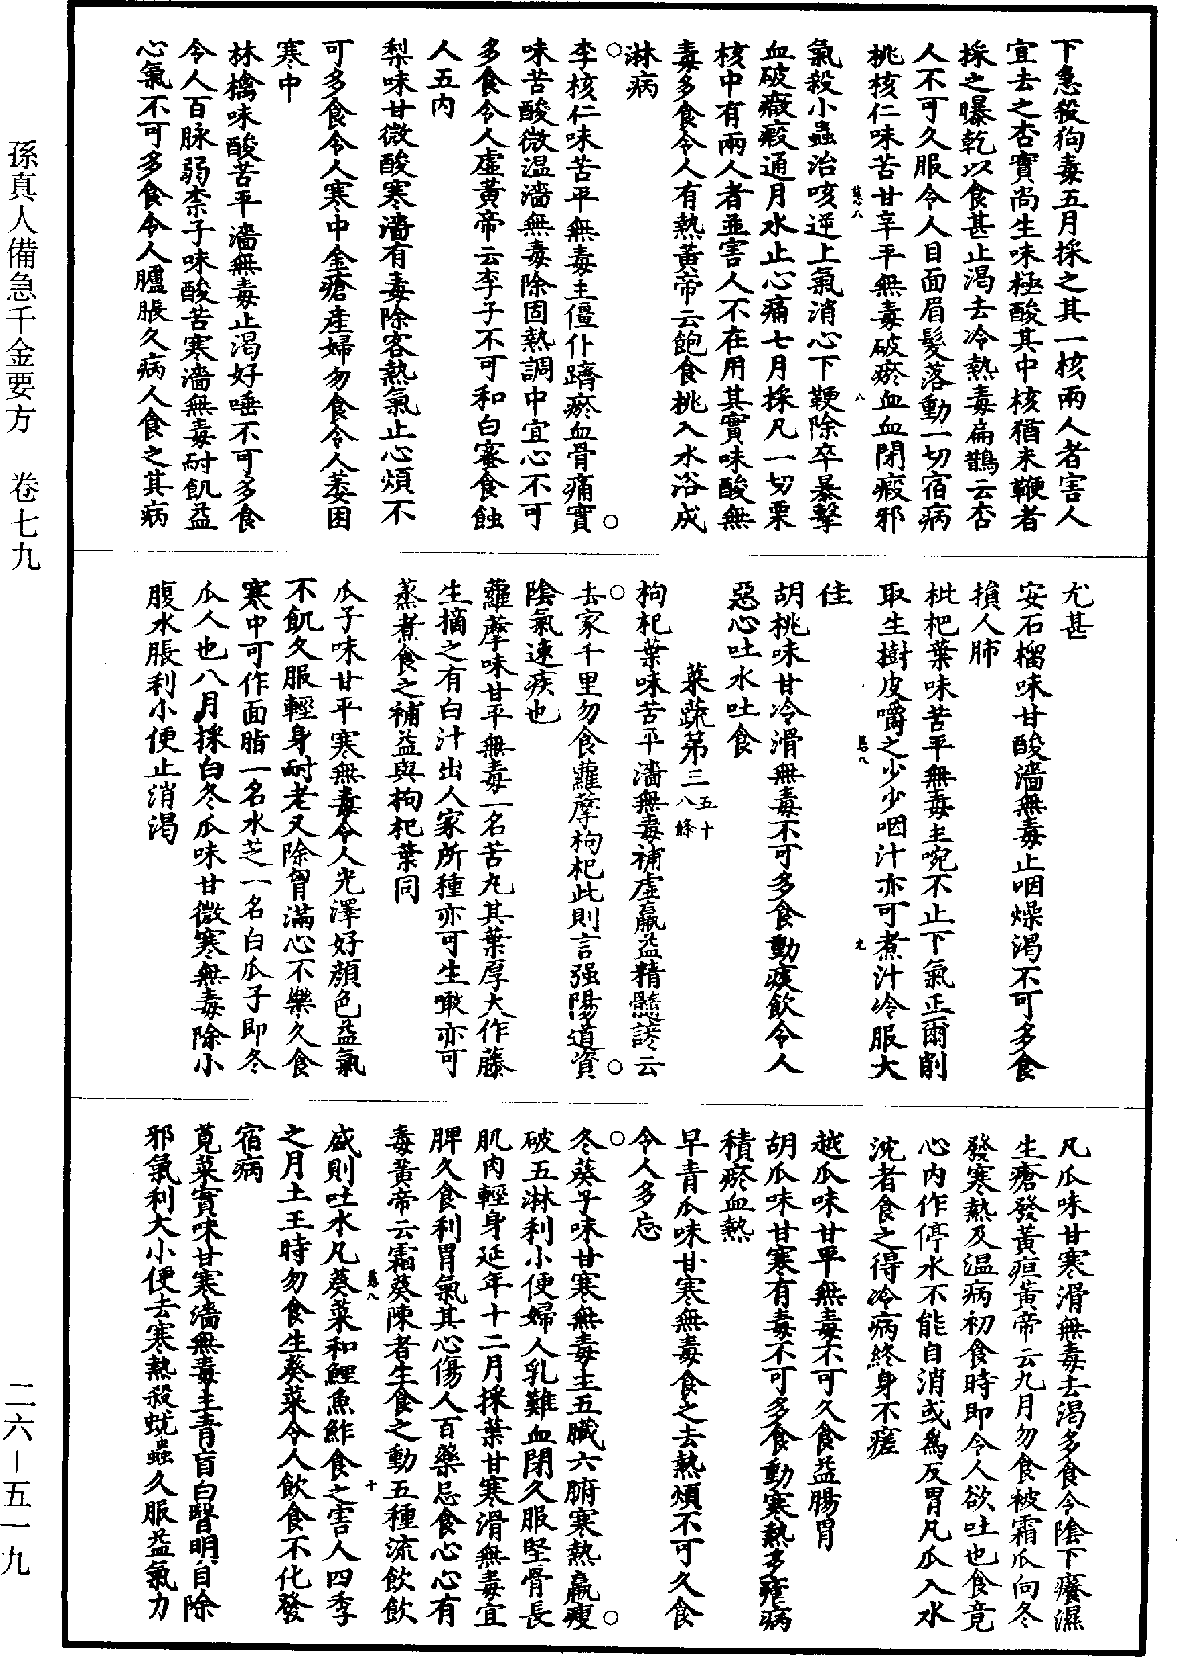 下急殺狗毒五月採之其一核兩人者害人
宜去之杏實尚生味極酸其中核猶未鞕者
採之曝乾以食甚止渴去冷熱毒扁鵲云杏
人不可久服令人目面眉髮落動一切宿病
桃核仁味苦甘辛平無毒破瘀血血閉瘕邪
氣殺小蟲治咳逆上氣消心下鞕除卒暴擊
血破癥瘕通月水止心痛七月採凡一切栗
核中有兩人者並害人不在用其實味酸無
毒多食令人有熱黃帝云飽食桃入水浴成
淋病
李核仁味苦平無毒主僵仆躋瘀血骨痛實
味苦酸微溫濇無毒除固熱調中宜心不可
多食令人虛黃帝云李子不可和白蜜食蝕
人五內
梨味甘微酸寒濇有毒除客熱氣止心煩不
可多食令人寒中金瘡產婦勿食令人萎困
寒中
林檎味酸苦平濇無毒止渴好唾不可多食
令人百脉弱柰子味酸苦寒濇無毒耐飢益
心氣不可多食令人臚脹久病人食之其病
尤甚
安石榴味甘酸濇無毒止咽燥渴不可多食
損人肺
枇杷葉味苦平無毒主啘不止下氣正爾削
取生樹皮嚼之少少咽汁亦可煮汁冷服大
佳
胡桃味甘冷滑無毒不可多食動痰飲令人
惡心吐水吐食
菜蔬第三五十八條
枸杞葉味苦平濇無毒補虛羸益精髓諺云
去家千里勿食蘿摩枸杞此則言强陽道資
陰氣速疾也
蘿摩味甘平無毒一名苦丸其葉厚大作藤
生摘之有白汁出人家所種亦可生噉亦可
蒸煮食之補益與枸杞葉同
瓜子味甘平寒無毒令人光澤好顏色益氣
不飢久服輕身耐老又除胷滿心不樂久食
寒中可作面脂一名水芝一名白瓜子即冬
瓜人也八月採白冬瓜味甘微寒無毒除小
腹水脹利小便止消渴
凡瓜味甘寒滑無毒去渴多食令陰下癢濕
生瘡發黃疸黃帝云九月勿食被霜瓜向冬
發寒熱及溫病初食時即令人欲吐也食竟
心內作停水不能自消或為反胃凡瓜入水
沈者食之得冷病終身不瘥
越瓜味甘平無毒不可久食益腸胃
胡瓜味甘寒有毒不可多食動寒熱多瘧病
積瘀血熱
早青瓜味甘寒無毒食之去熱煩不可久食
令人多忘
冬葵子味甘寒無毒主五臟六腑寒熱羸瘦
破五淋利小便婦人乳難血閉久服堅骨長
肌肉輕身延年十二月採葉甘寒滑無毒宜
脾久食利胃氣其心傷人百藥忌食心心有
毒黃帝云霜葵陳者生食之動五種流飲飲
盛則吐水凡葵菜和鯉魚鮓食之害人四季
之月土王時勿食生葵菜令人飲食不化發
宿病
莧菜實味甘寒濇無毒主青盲白瞖明目除
邪氣利大小便去寒熱殺蚘蟲久服益氣力
孫真人備急千金要方 卷七九
二六－五一九